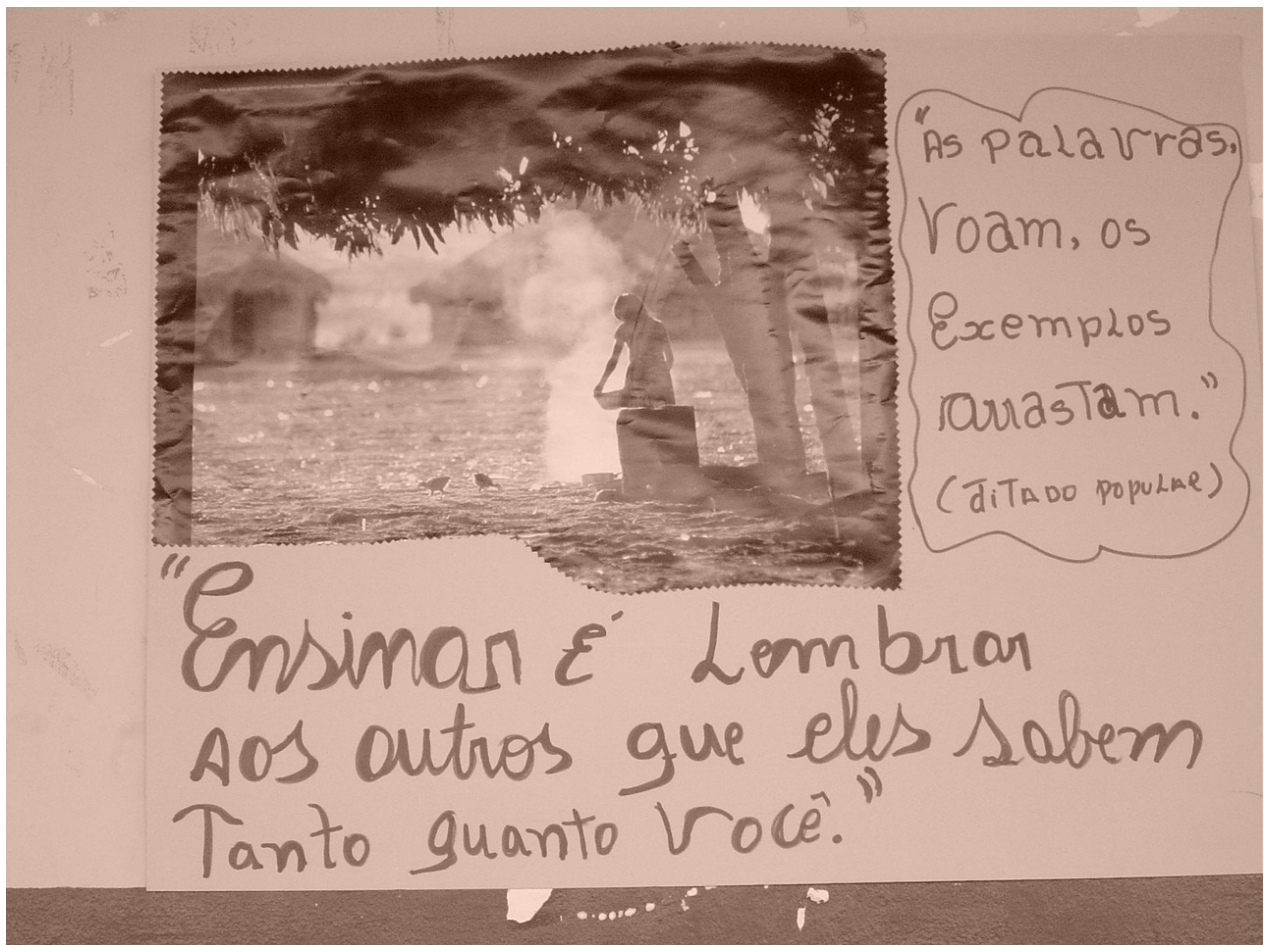 "As palavras,
voam, os
Exemplos
arrastam."
(ditado popular)
"Ensinar é Lembrar
aos outros que eles sabem
Tanto quanto você."